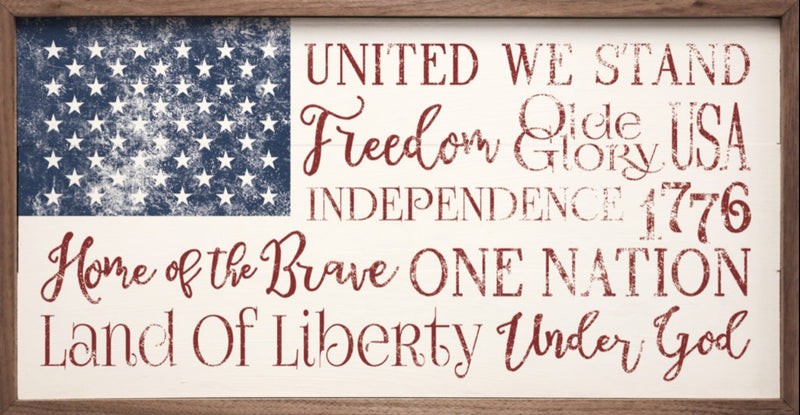 UNITED WE STAND
Freedom Olde Glory USA
INDEPENDENCE 1776
Home of the Brave ONE NATION
Land Of Liberty Under God